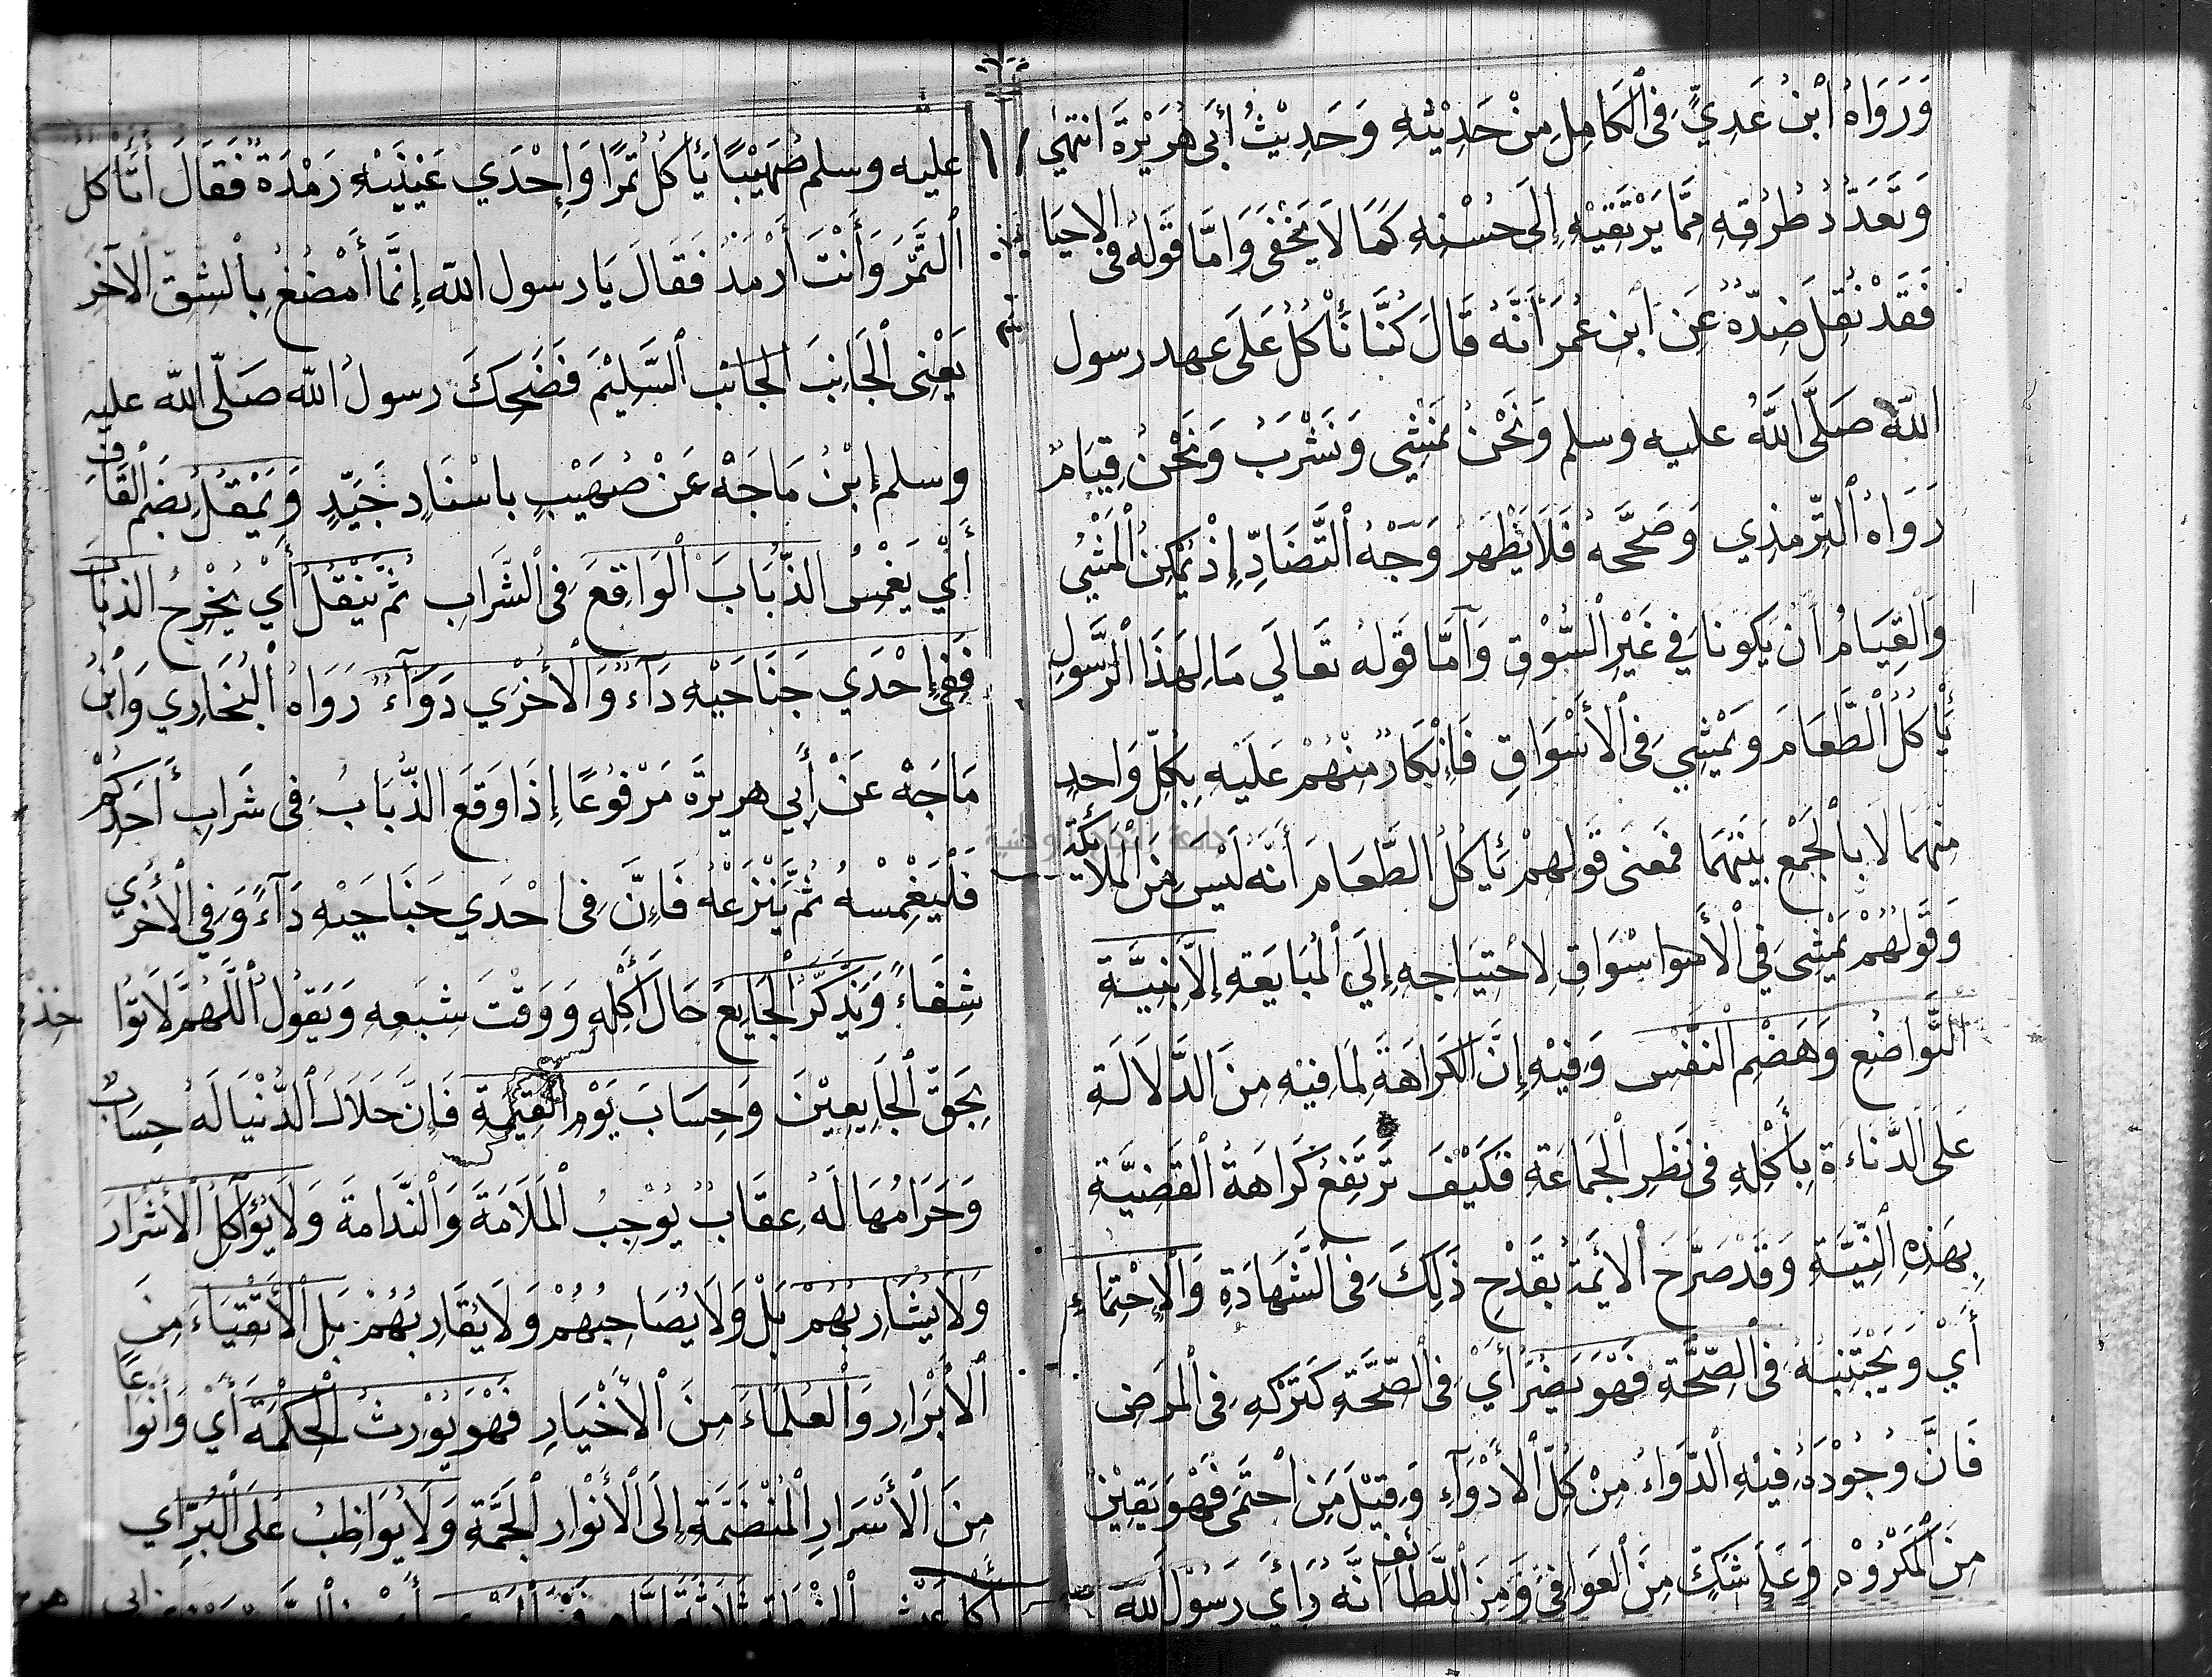 وَرَوَاهُ ابْنُ عَدِيٍّ فِى الْكَامِلِ مِنْ حَدِيْثِهِ وَحَدِيْثُ أَبِى هُرَيْرَةَ انتهى
وَتَعَدُّدُ طُرُقِهِ مِمَّا يَرْتَقِيْهِ إِلَى حُسْنِهِ كَمَا لَا يَخْفَى وَامَّا قَوْلُهُ فى الاحيا
فَقَدْ نُقِلَ ضِدُّهُ عَنِ ابنِ عُمَرَ أَنَّهُ قَالَ كُنَّا نَأْكُلُ عَلَى عهد رسول
اللّه صَلَّى اللَّهُ عليه وسلم وَنَحْنُ نَمْشِي وَنَشْرَبُ وَنَحْنُ قِيَامٌ
رَوَاهُ التِّرْمِذِي وَصَحَّحَهُ فَلَا يَظْهَرُ وَجْهُ التَّضَادِّ إِذْ يُمْكِنُ الْمَشْيُ
وَالْقِيَامُ أَنْ يَكُونَا فِي غَيْرِ السُّوْقِ وَأَمَّا قَوْلُهُ تَعَالَي مَا لِهَذَا الرَّسُوْلِ
يَأْكُلُ الطَّعَامَ وَيَمْشِي فِى الأَسْوَاقِ فَإِنْكَارٌ مِنْهُمْ عَلَيْهِ بِكُلِّ وَاحِدٍ
مِنْهُمَا لَا بِالْجَمْعِ بَيْنَهُمَا فَمَعنَى قَوْلِهِمْ يَأكُلُ الطَّعَامَ أَنَّهُ لَيْسَ مِنَ الْمَلَائِكَةِ
وَقَوْلُهُمْ يَمْشِى فِي الْأسوا سْوَاقِ لِاحْتِيَاجِهِ إِلَي الْمُبَايَعَةِ إِلَّا بِنِيَّةِ
التَّوَاضُعِ وَهَضْمِ النَّفْسِ وَفِيْهِ إِنَّ الْكَرَاهَةَ لِمَا فيه مِنَ الدَّلَالَةِ
عَلَى الدَّنَاءَةِ بِأَكْلِهِ فى نَظَرِ الْجَمَاعَةِ فَكَيْفَ تَرْتَفِعُ كَرَاهَةُ الْقَضِيَّةِ
بِهَذِهِ النِّيَّةِ وَقَدْ صَرَّحَ الأَئِمَّةُ بِقَدْحِ ذَلِكَ فِى الشَّهَادَةِ وَالْإِحْتِمَاءِ
أَيْ وَيَجْتَنِبُهُ فى الصِّحَّةِ فَهُوَ يَضُرُّ أَيْ فِى الصِّحَّةِ كَتَرْكِهِ فِى الْمَرَضِ
فَانَّ وُجُوْدَهُ فِيْهِ الدَّوَاءُ مِنْ كُلِّ الأَدْوَآءِ وَقِيْلَ مَنِ احْتَمَى فَهُوَ يَقِيْنٌ
مِنَ الْمَكْرُوْهِ وَعَلَى شَكٍّ مِنَ الْعَوَافِي وَمِنَ اللَّطَائِفِ أَنَّهُ رَأَي رَسُوْلُ اللّه
عليه وسلم صُهَيْبًا يَأْكُلُ تَمْرًا وَإِحْدَي عَيْنَيْهِ رَمْدَةٌ فَقَالَ أَتَأْكُل
التَّمْرَ وَأَنْتَ أَرْمَدُ فَقَالَ يَا رسول اللّه إِنَّمَا أَمْضُغُ بِالشِّقِّ الآخَرِ
يَعْنِى الْجَانِبَ الجانب السَّلِيْمَ فَضَحِكَ رسولُ اللّه صَلَّى اللّه عليه
وسلم إِبْنُ مَاجَهْ عَنْ صُهَيْبٍ باسْنَادٍ جَيِّدٍ وَيَمْقُلُ بِضَمِّ الْقَافِ
أَيْ يَغْمِسُ الذُّبَابَ الْوَاقِعَ فِى الشَّرَابِ ثُمَّ يَنْقُلُ أَيْ يُخْرِجُ الذبابَ
فَفِى إِحْدَي جَنَاحَيْهِ دَآءٌ وَالْأُخْرَي دَوَآءٌ رَوَاهُ الْبُخَارِي وَابْنُ
مَاجَهْ عَنْ أَبِي هريرة مَرْفُوْعًا إِذَا وَقَعَ الذُّبَابُ فِى شَرَابِ أَحَدِكُمْ
فَلْيَغْمِسْهُ ثُمَّ يَنْزِعْهُ فَإِنَّ فِى احْدَي جَنَاحَيْهِ دَآءً وَفِي الْأُخْرَي
شِفَاءً وَيَذْكُرُ الْجَايِعَ حَالَ أَكْلِهِ وَوَقْتَ شِبَعِهِ وَيَقُولُ اللَّهُمَّ لَا تُوَا خذنا
بِحَقِّ الْجَايِعِيْنَ وَحِسَابَ يَوْمِ الْقِيٰمَةِ فَإِنَّ حَلَالَ الدُّنْيَا لَهُ حِسَابٌ
وَحَرَامُهَا لَهُ عِقَابٌ يُوْجِبُ الْمَلَامَةَ وَالنَّدَامَةَ وَلَا يُؤَآكِلُ الْأَشْرَارَ
وَلَا يُشَارِبُهُمْ بَلْ وَلَا يُصَاحِبُهُمْ وَلَا يُقَارِبُهُمْ بَلِ الْأَتْقِيَاءَ مِنَ
الْأَبْرَارِ وَالْعُلَمَاءَ مِنَ الْأَخْيَارِ فَهُوَ يُوْرِثُ الْحِكْمَةَ أَيْ وَأَنْوَاعًا
مِنَ الْأَسْرَارِ الْمُنْضَمَّةِ إِلَى الْأَنْوَارِ الْجَمَّةِ وَلَا يُوَاظِبُ عَلَى الْبُرِّ أي